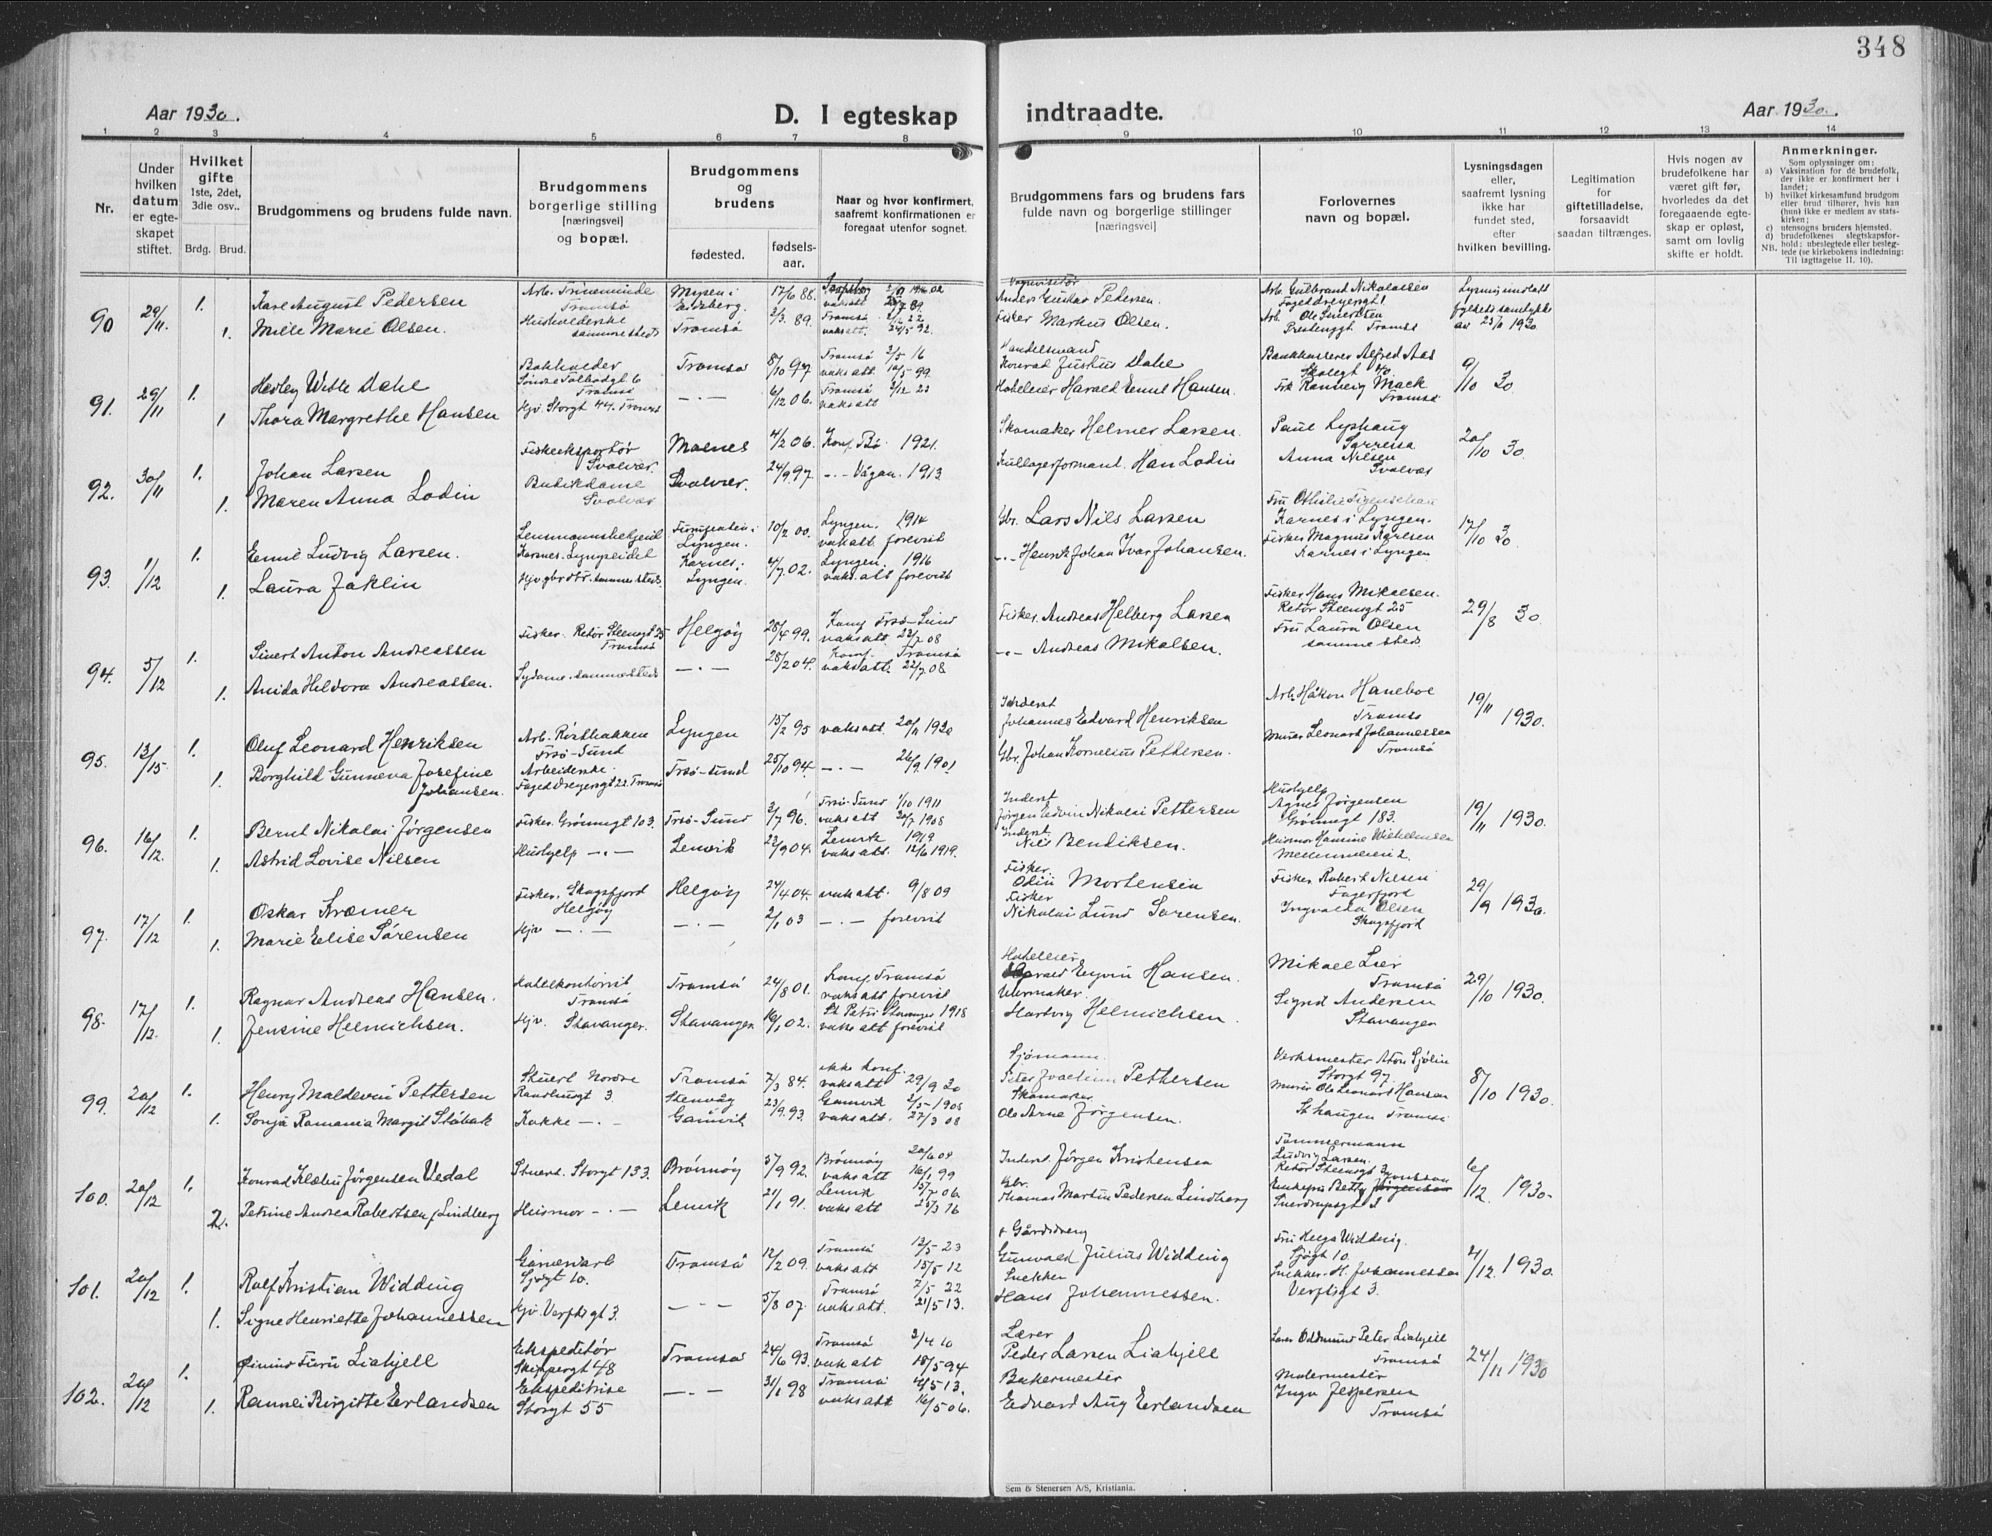 348
Aar 1930.
D. I egteskap
indtraadte.
Aar 1930.
1 2 3 4 5 6 7 8 9 10 11 12 13 14
Nr.
Under hvilken datum er egteskapet stiftet.
Hvilket gifte 1ste, 2det, 3die osv..
Brdg. Brud.
Brudgommens og brudens fulde navn.
Brudgommens borgerlige stilling [næringsvei] og bopæl.
Brudgommens og brudens
fødested.
fødselsaar.
Naar og hvor konfirmert, saafremt konfirmationen er foregaat utenfor sognet.
Brudgommens fars og brudens fars fulde navn og borgerlige stillinger [næringsvei]
Forlovernes navn og bopæl.
Lysningsdagen eller, saafremt lysning ikke har fundet sted, efter hvilken bevilling.
Legitimation for giftetilladelse, forsaavidt saadan tiltrænges.
Hvis nogen av brudefolkene har været gift før, hvorledes da det foregaaende egteskap er opløst, samt om lovlig skifte er holdt.
Anmerkninger.
Som oplysninger om:
a) Vaksination for de brudefolk, der ikke er konfirmert her i landet;
b) hvilket kirkesamfund brudgom eller brud tilhører, hvis han (hun) ikke er medlem av statskirken;
c) utensogns bruders hjemsted.
d) brudefolkenes slegtskapsforhold: ubeslegtede eller beslegtede (se kirkebokens indledning:
NB. Til iagttagelse II. 10).
90 29/11 1. Kare August Pedersen 17/6 88. Anders Gustav Pedersen. Arb. Gulbrand Nikolaissen
1. Mille Marie Olsen. Tromsø 2/3 89. Fisker Markus Olsen.
91. 29/11 1. Hedley Witte Dahl Bokholder Tromsø 8/10 97 Tromsø 2/5 16 Konrad Justus Dahl Bankkasserer Alfred Aas 9/10 30
1 Thora Margrethe Hansen Hjv. Storgt 44. Tromsø — . — 6/12 06. Tromsø vaksatt Hotelleier Harald Emil Hansen. Frk Rannveig Mack Tromsø
92. 30/11 1. Johan Larsen Fiskeeksportør Svolvær. Malnes 4/2 06. Konf. Bø. 1921. Skomaker Helmer Larsen. 20/10 30.
1. Maren Anna Lodin Butikdame Svolvær Svolvær. 24/9 97. — . — Vågan. 1913 Kullagerformand. Han Lodin Anna Nilsen Svolvær
93. 1/12 1. Emil Ludvig Larsen. 10/2 00. Lyngen. 1914 vaksatt forevist Gbr. Lars Nils Larsen Karnes i Lyngen. 17/10 30.
1. Laura Jaklin Karnes i Lyngen. 4/7 02. Lyngen. 1916 vaks.att forevist — . — Henrik Johan Ivar Johansen. Fisker Magnus Karlsen Karnes i Lyngen
94. 5/12 1. Sivert Anton Andreassen Fisker. Retør Steensgt 25 Tromsø Helgøy 28/4 99. Konf Trsø-Sund vaksatt 22/7 08 Fisker. Andreas Helberg Larsen Fisker Hans Mikalsen. Retør Steensgt 25 29/8 30.
1. Anida Heldora Andreassen. Sydame. sammesteds — . — 28/2 04. Konf. Tromsø vaksatt. 22/7 08 — . — Andreas Mikalsen. Fru Laura Olsen sammesteds
95. 13/15. 1. Oluf Leonard Henriksen Trsø-Sund Lyngen 15/2 95 vaksatt 20/11 1930 Johannes Edvard Henriksen Arb. Håkon Haneboe Tromsø 19/11 1930.
1. Borghild Gunneva Josefine Johansen. Arbeiderske. Trsø-sund 25/10 94. — . — 26/9. 1901. Gbr. Johan Kornelius Pettersen. Murer Leonard Johannessen Tromsø
96. 16/12. 1. Bernt Nikolai Jørgensen Fisker. Grønnegt 103. Trsø-Sund 3/7 96. Trsø-Sund 1/10 1911 vaksatt 20/7 1908 Inderst Jørgen Edvin Nikolai Pettersen Hushjelp Agnes Jørgensen Grønnegt 183. 19/11 1930.
1. Astrid Lovise Nilsen Hushjelp — . — Lenvik 22/9 04. Lenvik 1919 vaksatt. 12/6 1919. Inderst. Nils Bendiksen.
97. 17/12 1. Oskar Kræmer Fisker. Skogsfjord Helgøy Helgøy 24/4 04. vaksatt. 9/8 09 Fisker. Odin Mortensen Fisker Robert Nilsen 29/9 1930.
1. Marie Elise Sørensen Hjv — . — — . — 2/1 03 — . — forevist Fisker Nikolai Lund Sørensen. Ingvalda Olsen Skogsfjord
98. 17/12. 1. Ragnar Andreas Hansen. Hotelkontorist Tromsø Tromsø 24/8 01. Konf Tromsø vaksatt forevist Hotelleier Harald Eyvin Hansen. Mikael Lier Tromsø 29/10 1930.
1. Jensine Helmichsen. Hjv. Stavanger. Stavanger 16/1 02. St Petri Stavanger 1918 vaksatt forevist Urmaker. Hartvig Helmichsen. Signd Andersen Stavanger
99. 20/12 1. Henry Maldevin Pettersen Tromsø 7/3 84. ikke konf. vaksatt 29/9 30 Sjømann. Peter Joachim Pettersen Verksmester Aton Sjølin Storgt 97. 8/10 1930.
1. Sonja Romania Margit Stabæk Kokke — . — Gamvik 23/9. 93. Gamvik 2/5 1908 vaksatt. 27/3 08 Skomaker Ole Arne Jørgensen. Murer Ole Leonard Hansen St. haugen Tromsø
100. 20/12 1. Konrad Klæbu Jørgensen Vedal Stuert. Storgt 133. Brönnöy 5/9 92. Brönnöy vaksatt 16/1 99 Inderst. Jørgen Kristensen Tømmermann Ludvig Larsen. 6/12 1930.
2. Petrine Andrea Robertsen f. Lindberg Husmor — . — Lenvik 21/1 91. Lenvik 15/7 06. vaksatt 25/3 16 Gbr. Thomas Martin Pedersen Lindberg
101. 20/12 1. Rolf Kristian Widding Sjøgt 10. Tromsø 12/2 09. Tromsø 13/5 23 vaksatt 15/5 12 Gunvald Julius Widding Fru Helga Widding. Sjøgt 10. 4/12. 1930.
1. Signe Henriette Johannessen Hjv. Verftsgt 3. — . — 5/8 07. Tromsø 7/5 22 vaksatt. 21/5 13. Snekker Hans Johannessen. Snekker. H. Johannessen Verftsgt 3.
102. 20/12 1. Øivind Furu Liahjell Ekspeditør Skippergt 48 Tromsø 24/6 93. Tromsø 3/4 10 vaksatt 18/5 94 Lærer Peder Larsen Liahjell Peter Liahjell Tromsø 24/11 1930
1. Rannei Birgitte Erlandsen Ekspeditrise Storgt 55 — . — 31/1 98 Tromsø 4/5 13. vaksatt 16/5 06. Bakermester Edvard Aug Erlandsen Malermester Inga Jespersen Tromsø
Sem & Stenersen A/S, Kristiania.